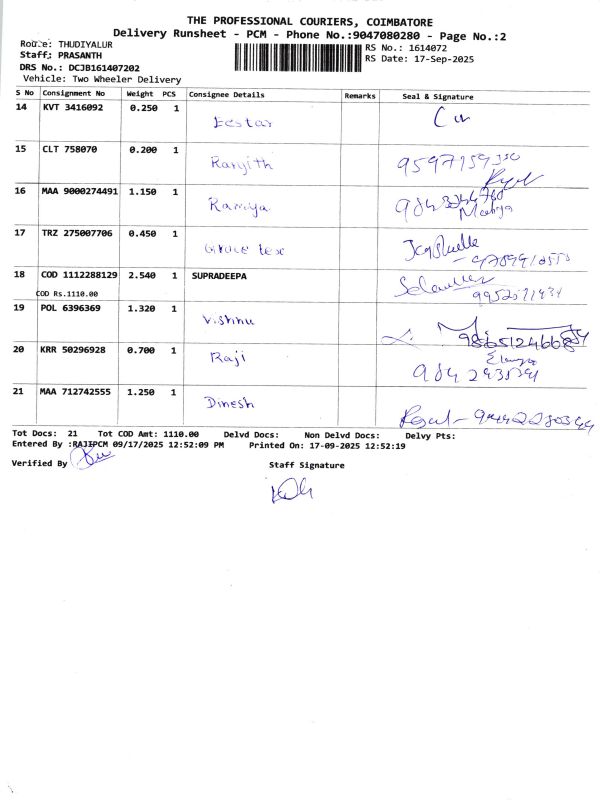 THE PROFESSIONAL COURIERS, COIMBATORE
Delivery Runsheet - PCM - Phone No.:9047080280 - Page No.:2
Route: THUDIYALUR
Staff: PRASANTH
DRS No.: DCJB161407202
Vehicle: Two Wheeler Delivery
RS No.: 1614072
RS Date: 17-Sep-2025
S No Consignment No Weight PCS Consignee Details Remarks Seal & Signature
14 KVT 3416092 0.250 1
15 CLT 758070 0.200 1 Ranjith
16 MAA 9000274491 1.150 1 Ramya
17 TRZ 275007706 0.450 1
18 COD 1112288129 2.540 1 SUPRADEEPA
COD Rs.1110.00
19 POL 6396369 1.320 1 Vishnu
20 KRR 50296928 0.700 1 Raji
21 MAA 712742555 1.250 1 Dinesh
Tot Docs: 21 Tot COD Amt: 1110.00 Delvd Docs: Non Delvd Docs: Delvy Pts:
Entered By :RAJIPCM 09/17/2025 12:52:09 PM Printed On: 17-09-2025 12:52:19
Verified By
Staff Signature